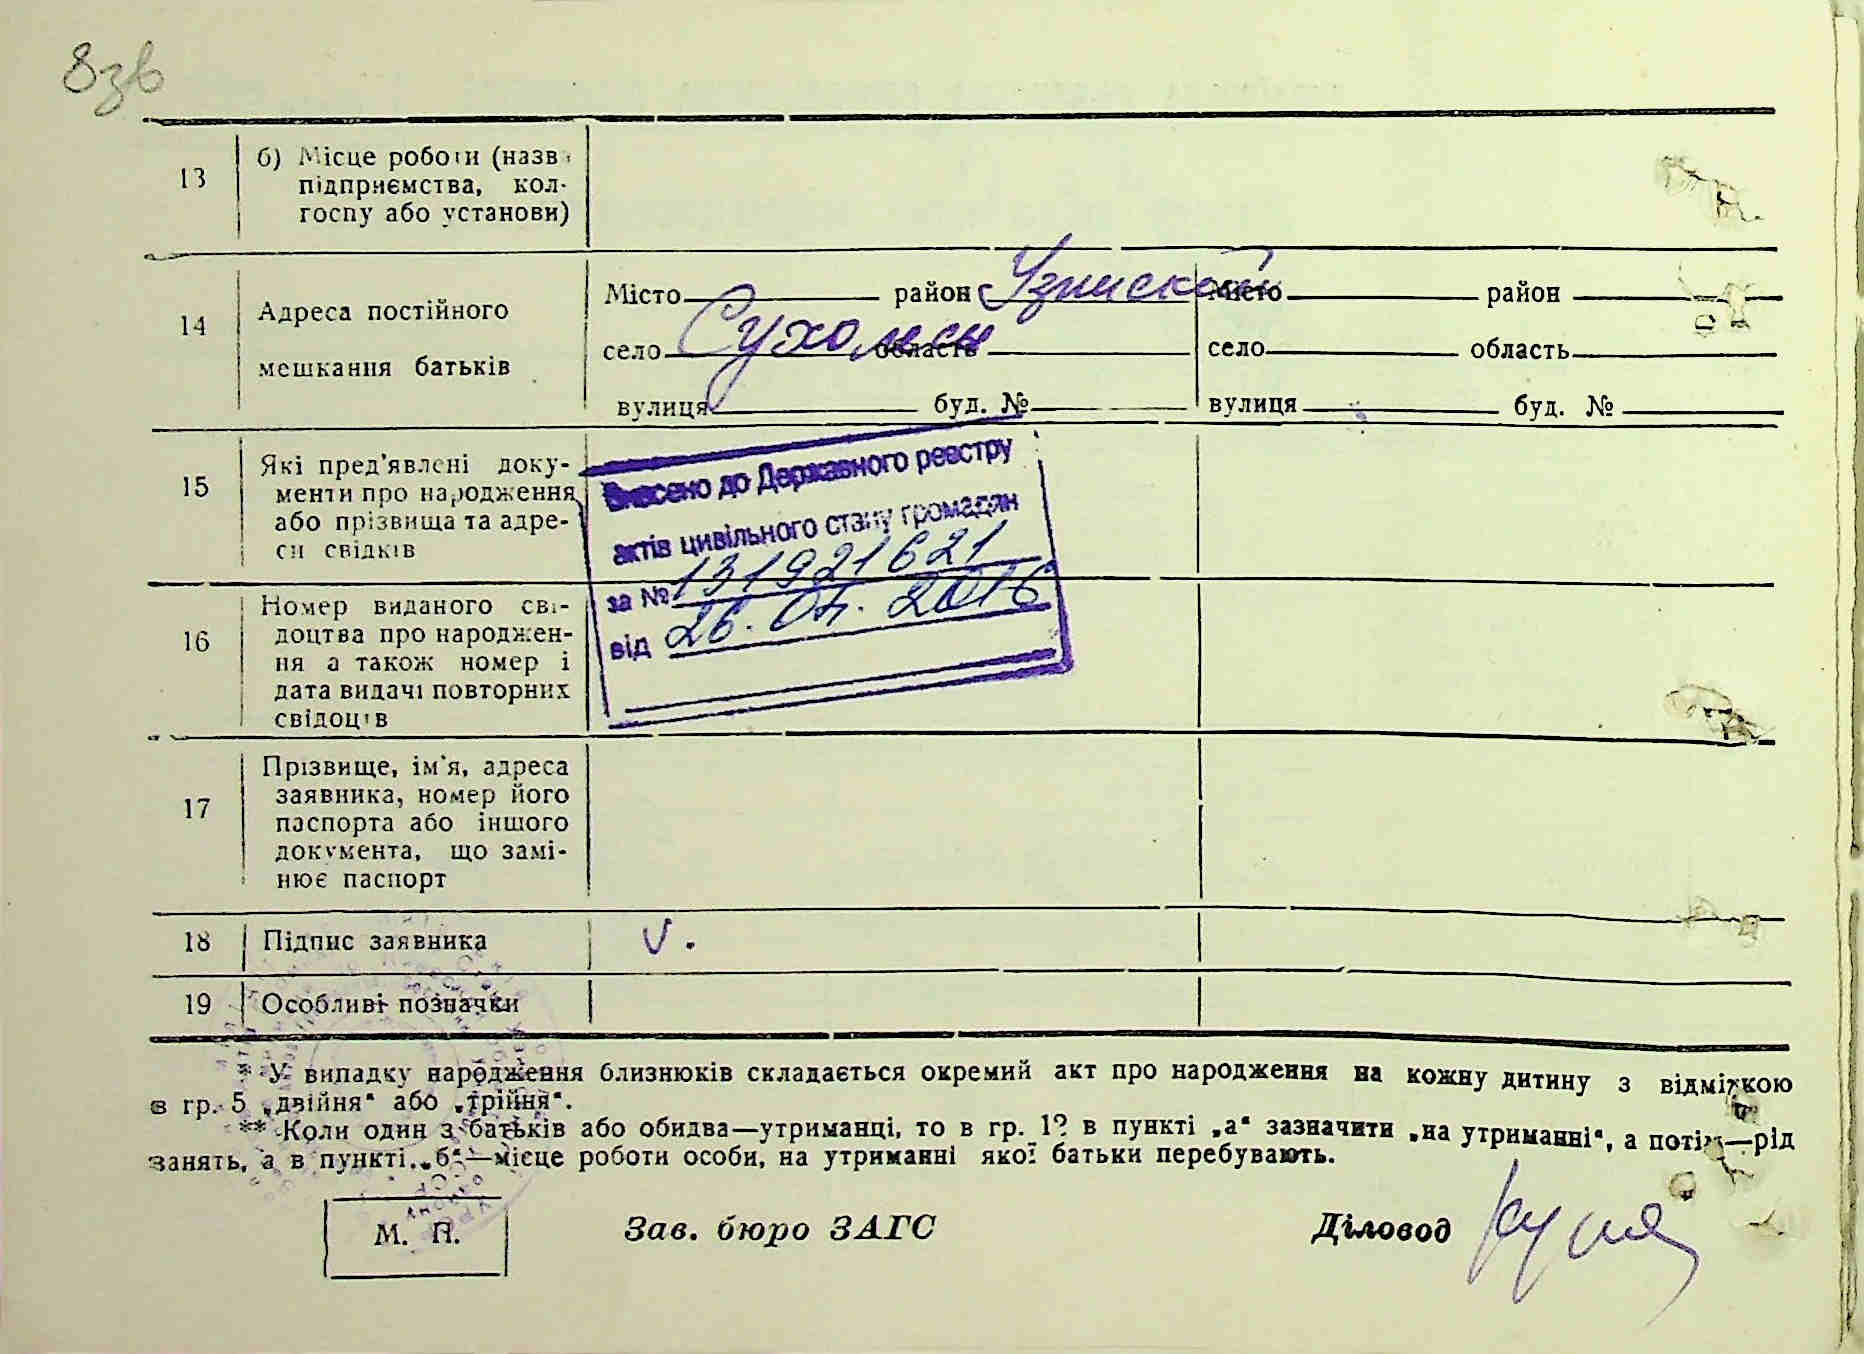 8зв
13 б) Місце роботи (назва
підприємства, кол-
госпу або установи)
14 Адреса постійного
мешкання батьків
Місто район Узинский Місто район
село Сухолеси область село область
вулиця буд. № вулиця буд. №
15 Які пред'явлені доку-
менти про народження
або прізвища та адре-
си свідків
Внесено до Державного реестру
актів цивільного стану громадян
за № 131921621
від 26.04.2016
16 Номер виданого сві-
доцтва про народжен-
ня а також номер і
дата видачі повторних
свідоцтв
17 Прізвище, ім'я, адреса
заявника, номер його
паспорта або іншого
документа, що замі-
нює паспорт
18 Підпис заявника
19 Особливі позначки
* У випадку народження близнюків складається окремий акт про народження на кожну дитину з відміткою
в гр. 5 „двійня“ або „трійня“.
** Коли один з батьків або обидва—утриманці, то в гр. 12 в пункті „а“ зазначити „на утриманні“, а потім—рід
занять, а в пункті „б“—місце роботи особи, на утриманні якої батьки перебувають.
М. П. Зав. бюро ЗАГС Діловод